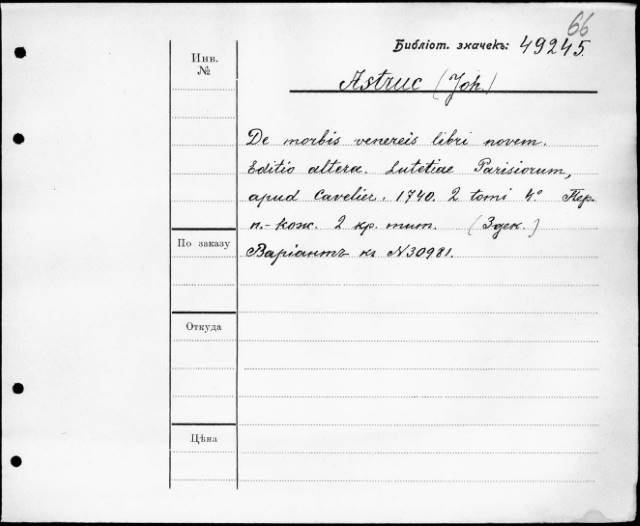 66
Библіот. значекъ: 49245.
Инв.
№
Astruc (Joh.)
De morbis venereis libri novem.
Editio altera. Lutetiae Parisiorum,
apud Cavelier. 1740. 2 tomi 4° Пер.
п.-кож. 2 кр. тит. (3 дек.)
По заказу
Варіантъ къ N 30981.
Откуда
Цѣна